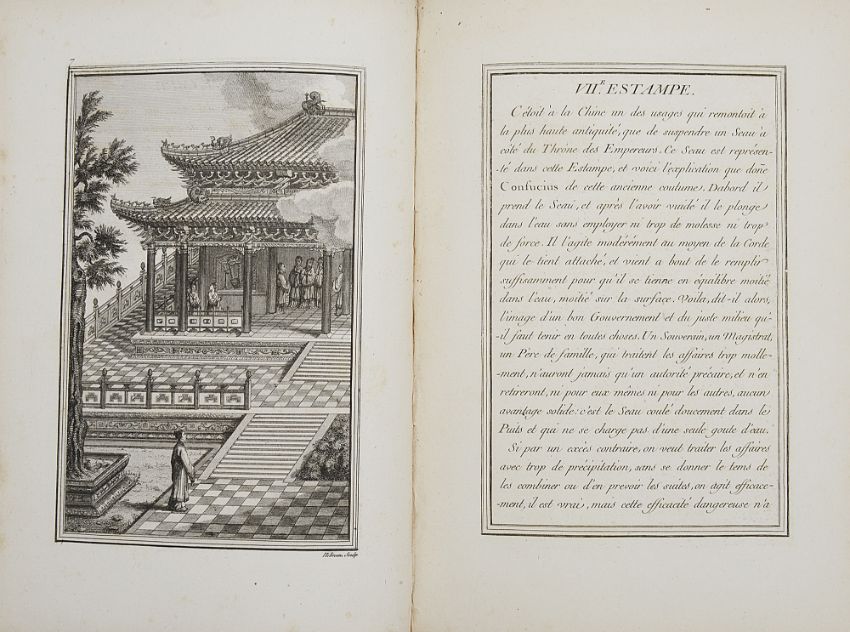 7
Helman, Sculp.
VII.E ESTAMPE.
C'étoit à la Chine un des usages qui remontoit à
la plus haute antiquité, que de suspendre un Seau à
côté du Thrône des Empereurs. Ce Seau est représen-
-té dans cette Estampe, et voici l'explication que doñe
Confucius de cette ancienne coutume. Dabord il
prend le Seau, et après l'avoir vuidé il le plonge
dans l'eau sans employer ni trop de molesse ni trop
de force. Il l'agite modérément au moyen de la Corde
qui le tient attaché, et vient a bout de le remplir
suffisamment pour qu'il se tienne en équilibre moitié
dans l'eau, moitié sur la surface. Voila, dit-il alors,
l'image d'un bon Gouvernement et du juste milieu qu'-
-il faut tenir en toutes choses. Un Souverain, un Magistrat,
un Père de famille, qui traitent les affaires trop molle-
-ment, n'auront jamais qu'un autorité précaire, et n'en
retireront, ni pour eux mêmes ni pour les autres, aucun
avantage solide: c'est le Seau coulé doucement dans le
Puits et qui ne se charge pas d'une seule goute d'eau.
Si par un excès contraire, on veut traiter les affaires
avec trop de précipitation, sans se donner le tems de
les combiner ou d'en prevoir les suites, on agit efficace-
-ment, il est vrai, mais cette efficacité dangereuse n'a